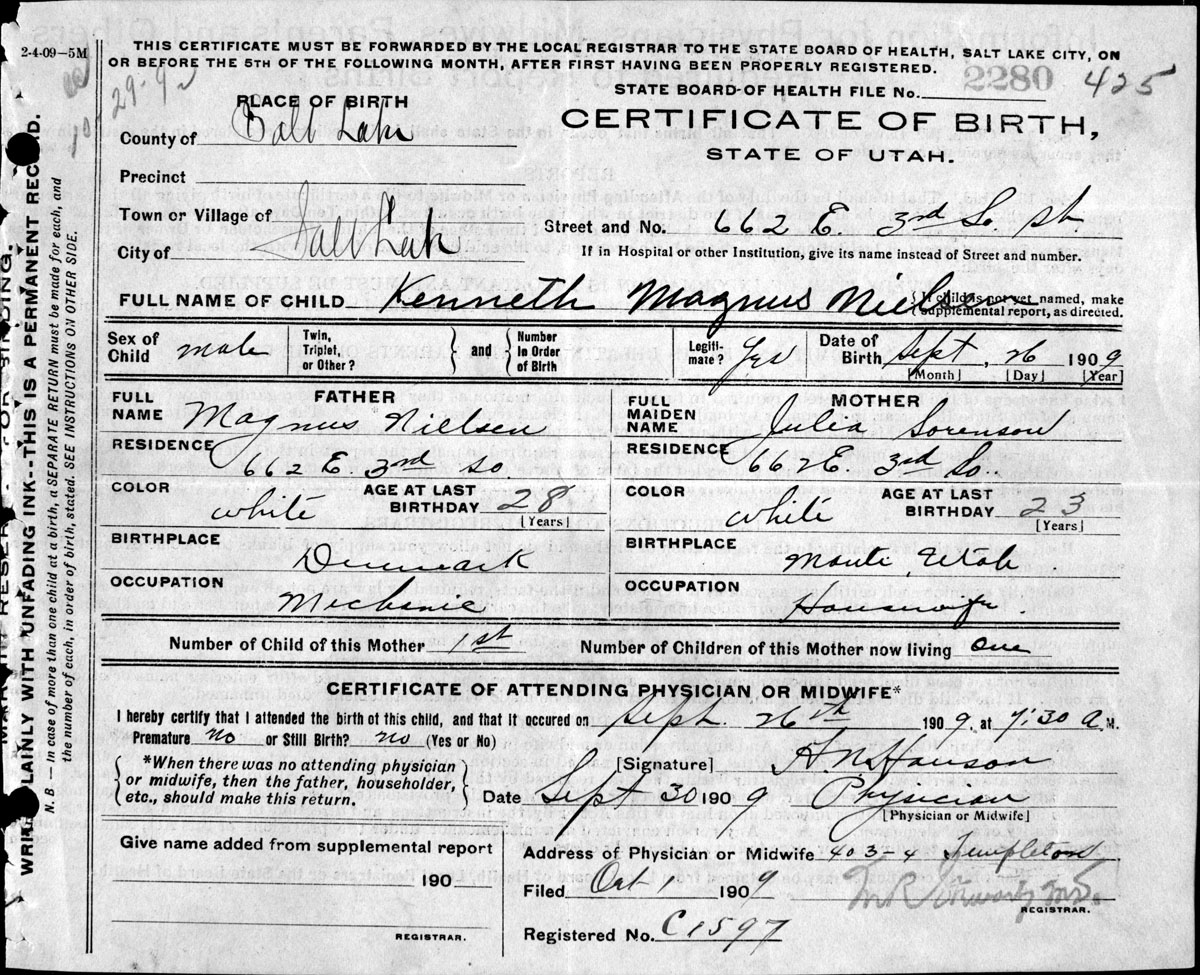 2-4-09—5M
THIS CERTIFICATE MUST BE FORWARDED BY THE LOCAL REGISTRAR TO THE STATE BOARD OF HEALTH, SALT LAKE CITY, ON
OR BEFORE THE 5TH OF THE FOLLOWING MONTH, AFTER FIRST HAVING BEEN PROPERLY REGISTERED.
2280 425
STATE BOARD OF HEALTH FILE No.
29-9
PLACE OF BIRTH
CERTIFICATE OF BIRTH,
STATE OF UTAH.
County of Salt Lake
Precinct
Town or Village of
Street and No. 662 E. 3rd So. St.
City of Salt Lake
If in Hospital or other Institution, give its name instead of Street and number.
FULL NAME OF CHILD Kenneth Magnus Nielsen
{If child is not yet named, make
supplemental report, as directed.
Sex of Child male
Twin, Triplet, or Other? } and { Number in Order of Birth
Legitimate? Yes
Date of Birth Sept. 26 1909
[Month] [Day] [Year]
FATHER
FULL NAME Magnus Nielsen
RESIDENCE 662 E. 3rd So.
COLOR white AGE AT LAST BIRTHDAY 28
[Years]
BIRTHPLACE Denmark
OCCUPATION Mechanic
MOTHER
FULL MAIDEN NAME Julia Sorenson
RESIDENCE 662 E. 3rd So.
COLOR white AGE AT LAST BIRTHDAY 23
[Years]
BIRTHPLACE Manti, Utah
OCCUPATION Housewife.
Number of Child of this Mother 1st Number of Children of this Mother now living one
CERTIFICATE OF ATTENDING PHYSICIAN OR MIDWIFE*
I hereby certify that I attended the birth of this child, and that it occured on Sept. 26th 1909. at 7:30 A.M.
Premature no or Still Birth? no (Yes or No)
*When there was no attending physician
or midwife, then the father, householder,
etc., should make this return.
[Signature] Hanson
Date Sept 30 1909 Physician
[Physician or Midwife]
Give name added from supplemental report
190
REGISTRAR.
Address of Physician or Midwife 403-4 Templeton
Filed Oct 1, 1909
REGISTRAR.
Registered No. C1597
WRITE PLAINLY WITH UNFADING INK--THIS IS A PERMANENT RECORD.
N. B.—In case of more than one child at a birth, a SEPARATE RETURN must be made for each, and
the number of each, in order of birth, stated. SEE INSTRUCTIONS ON OTHER SIDE.